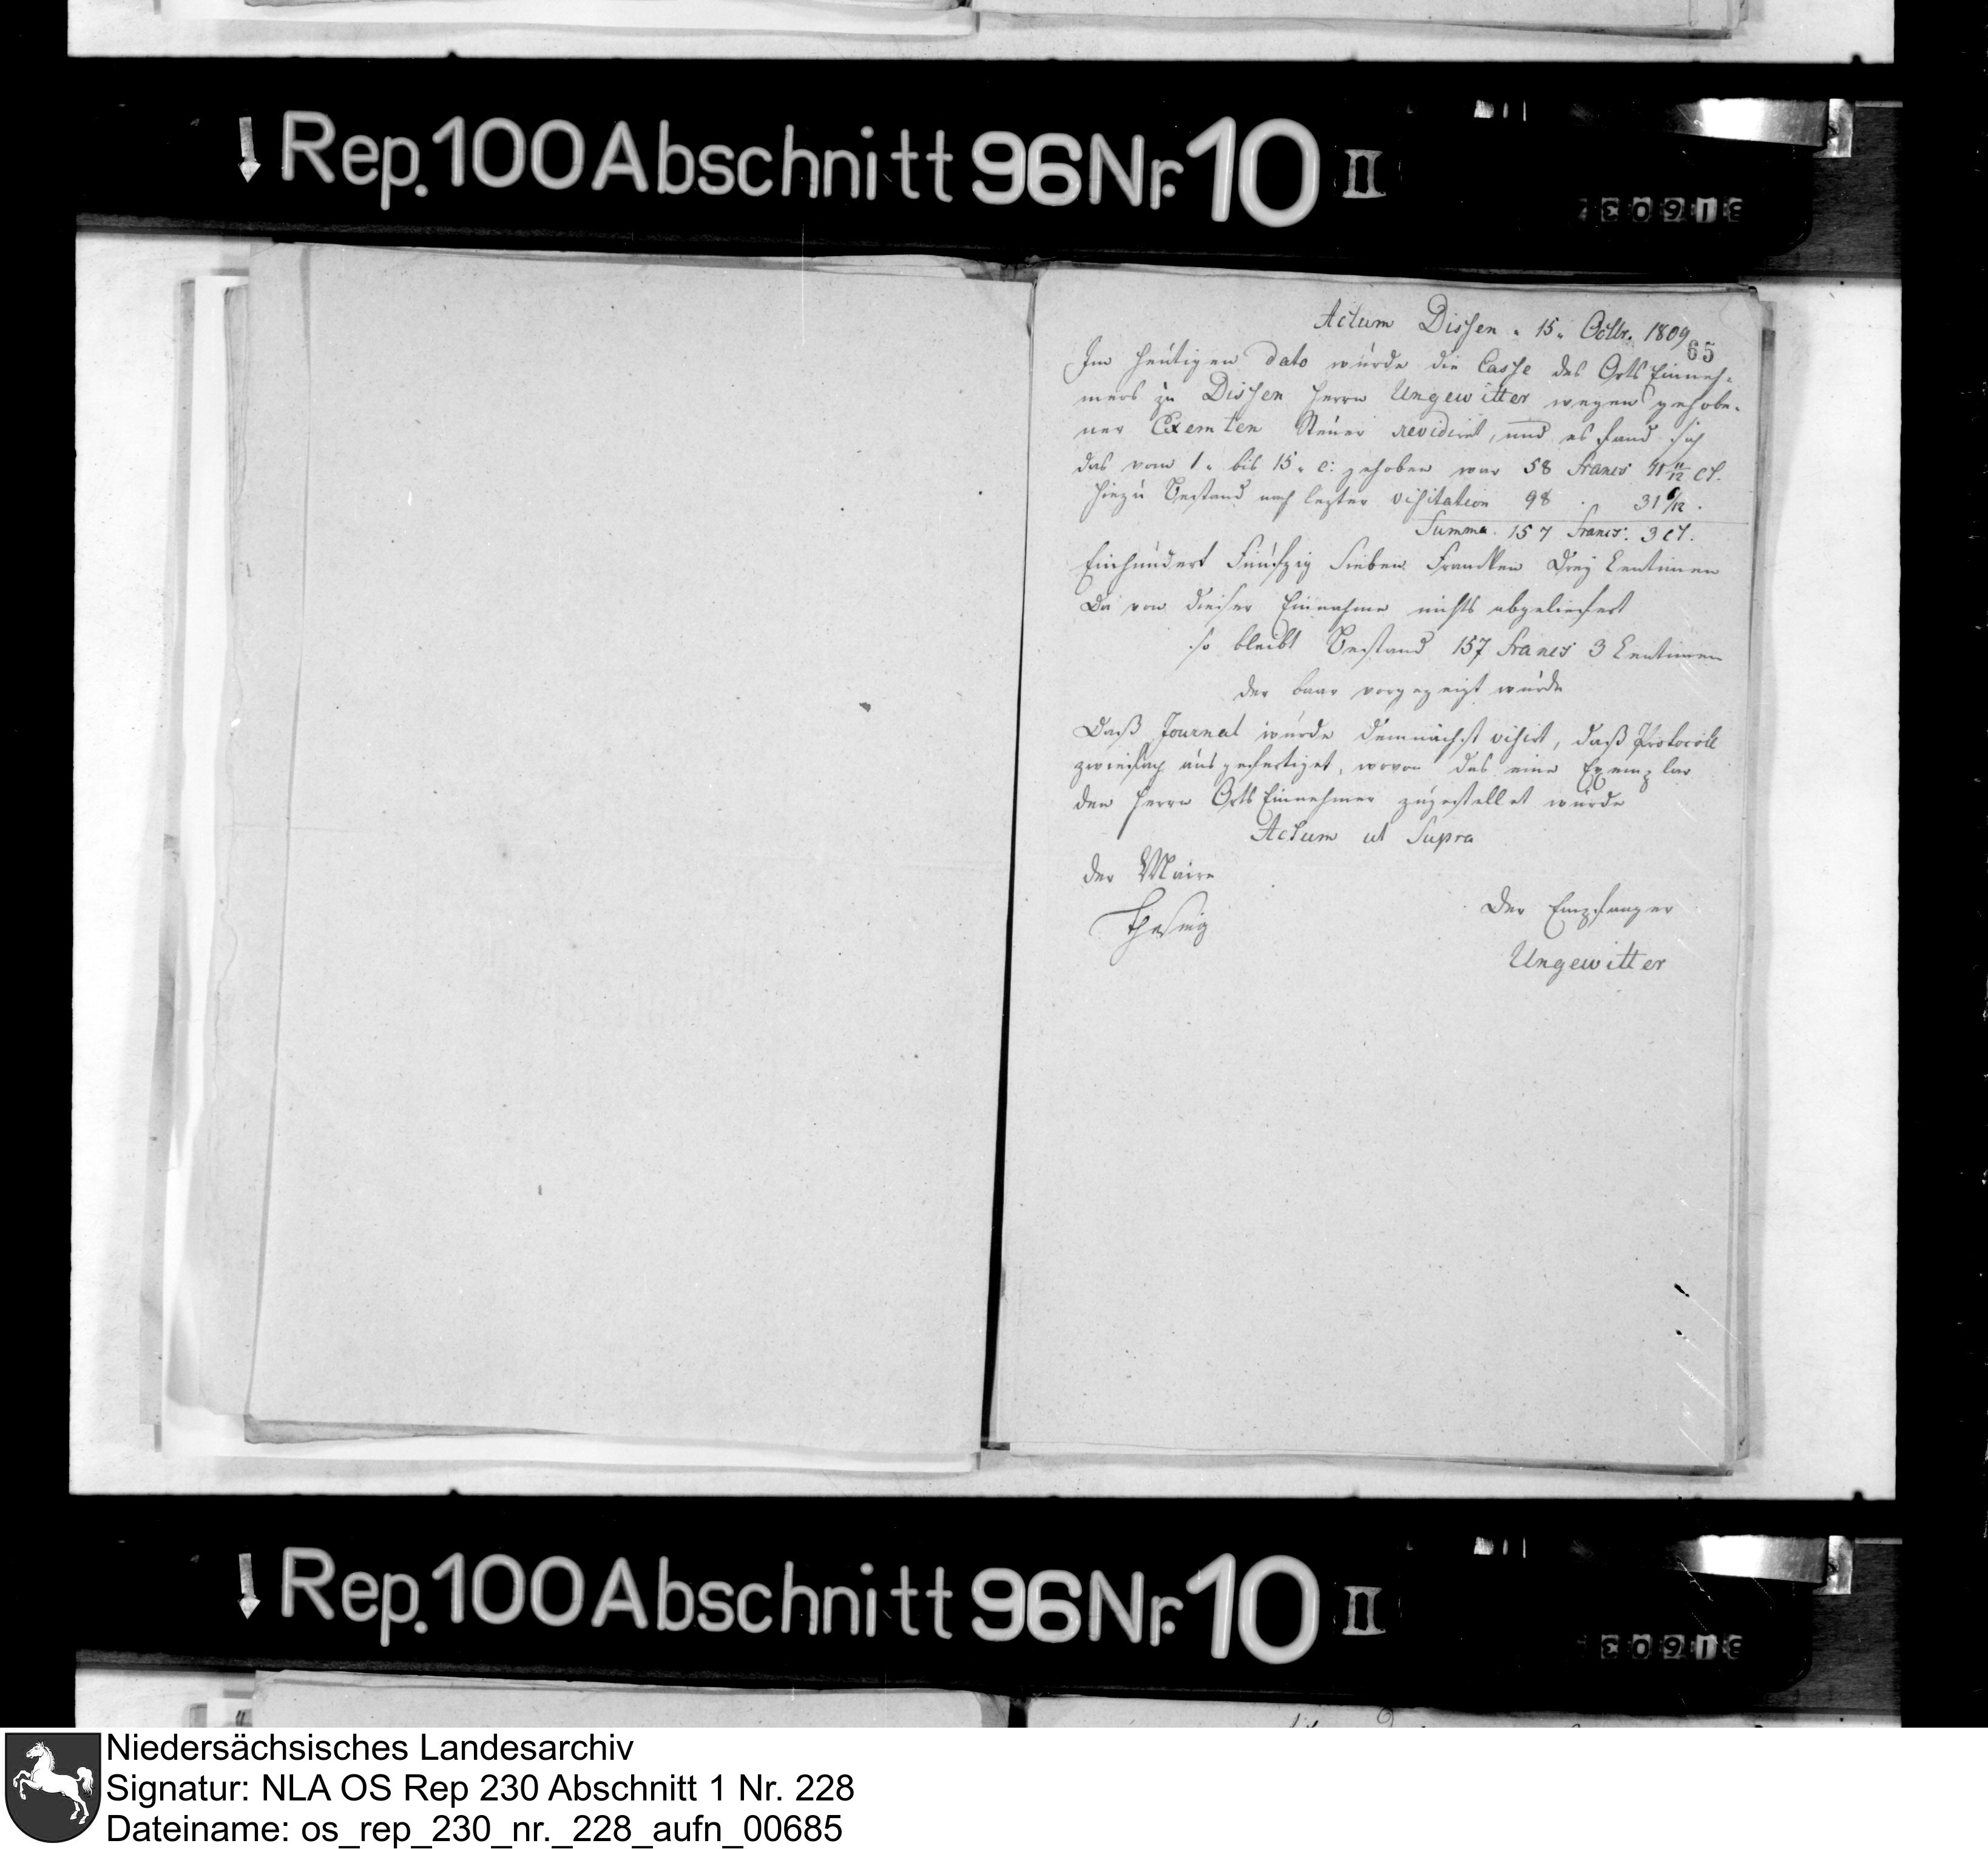 Rep. 100 Abschnitt 96 Nr. 10 II
31603
Actum Dissen . 15. Octbr. 1809
65
Im heutigen dato wurde die Casse des Orts Einneh-
mers zu Dissen Herrn Ungewitter wegen gehobe-
ner Exemten Steuer revidiret, und es fand sich
das vom 1. bis 15. c: gehoben war 58 francs 71 11/12 Ct.
Hiezu Bestand nach lezter visitation 98 . 31 1/12 .
Summa . 157 francs. 3 Ct.
Einhundert Funfzig Sieben Francken Drey Centimen
Da von dieser Einnahme nichts abgeliefert
so bleibt Bestand 157 francs 3 Centimen
der baar vorgezeigt wurde
Daß Journal wurde demnächst visirt, daß Protocoll
zwiefach ausgefertiget, wovon das eine Exemplar
den Herrn Orts Einnehmer zugestellet wurde
Actum ut Supra
der Maire
Der Empfanger
Ungewitter
Rep. 100 Abschnitt 96 Nr. 10 II
31603
Niedersächsisches Landesarchiv
Signatur: NLA OS Rep 230 Abschnitt 1 Nr. 228
Dateiname: os_rep_230_nr._228_aufn_00685